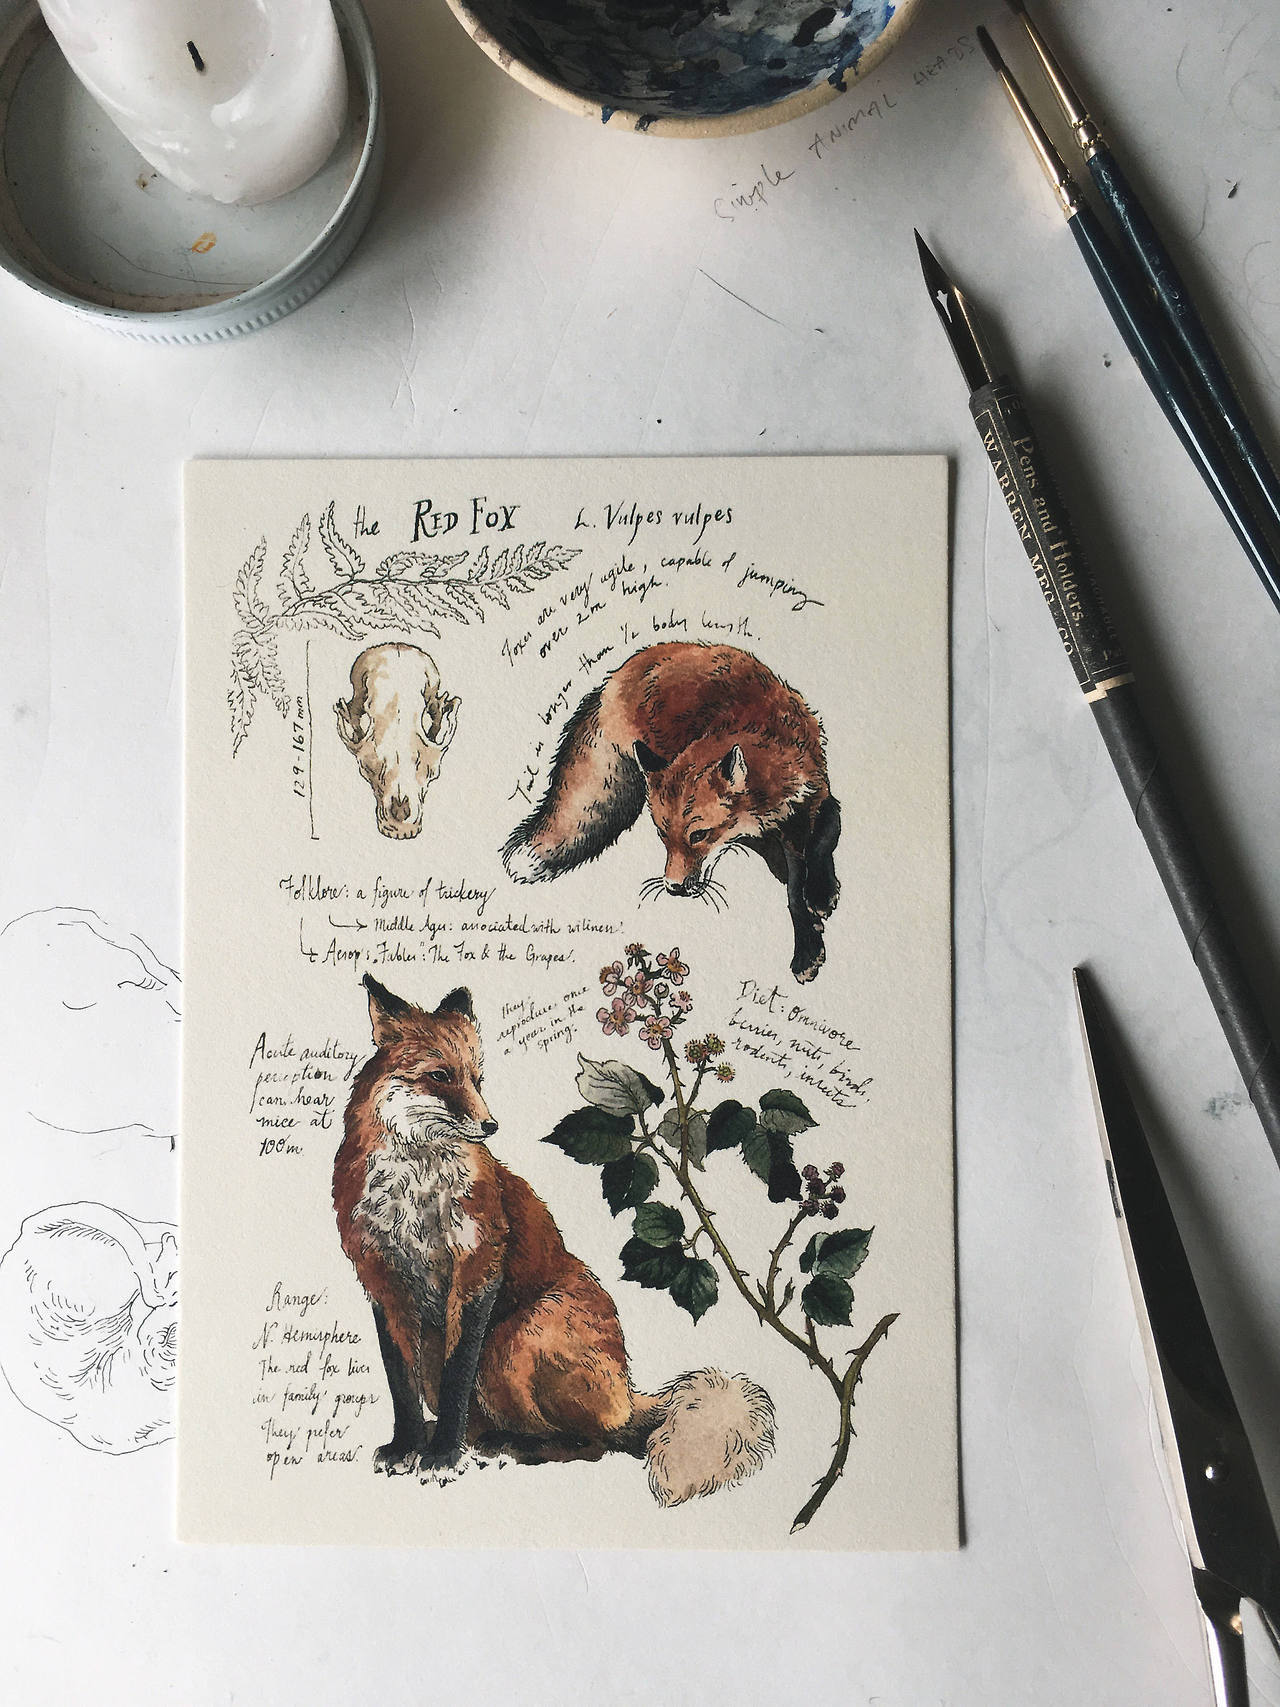 Simple ANIMAL HEADS
Pens and Holders.
WARREN MFG. CO.
the RED FOX L. Vulpes vulpes
Foxes are very agile, capable of jumping
over 2m high.
Tail is longer than 1/2 body length.
129-167mm
Folklore: a figure of trickery
Middle Ages: associated with wiliness.
Aesop's "Fables": The Fox & the Grapes.
they
reproduce once
a year in the
spring.
Diet: Omnivore
berries, nuts, birds,
rodents, insects
Acute auditory
perception
can hear
mice at
100m
Range:
N. Hemisphere
The red fox lives
in family groups
They prefer
open areas.